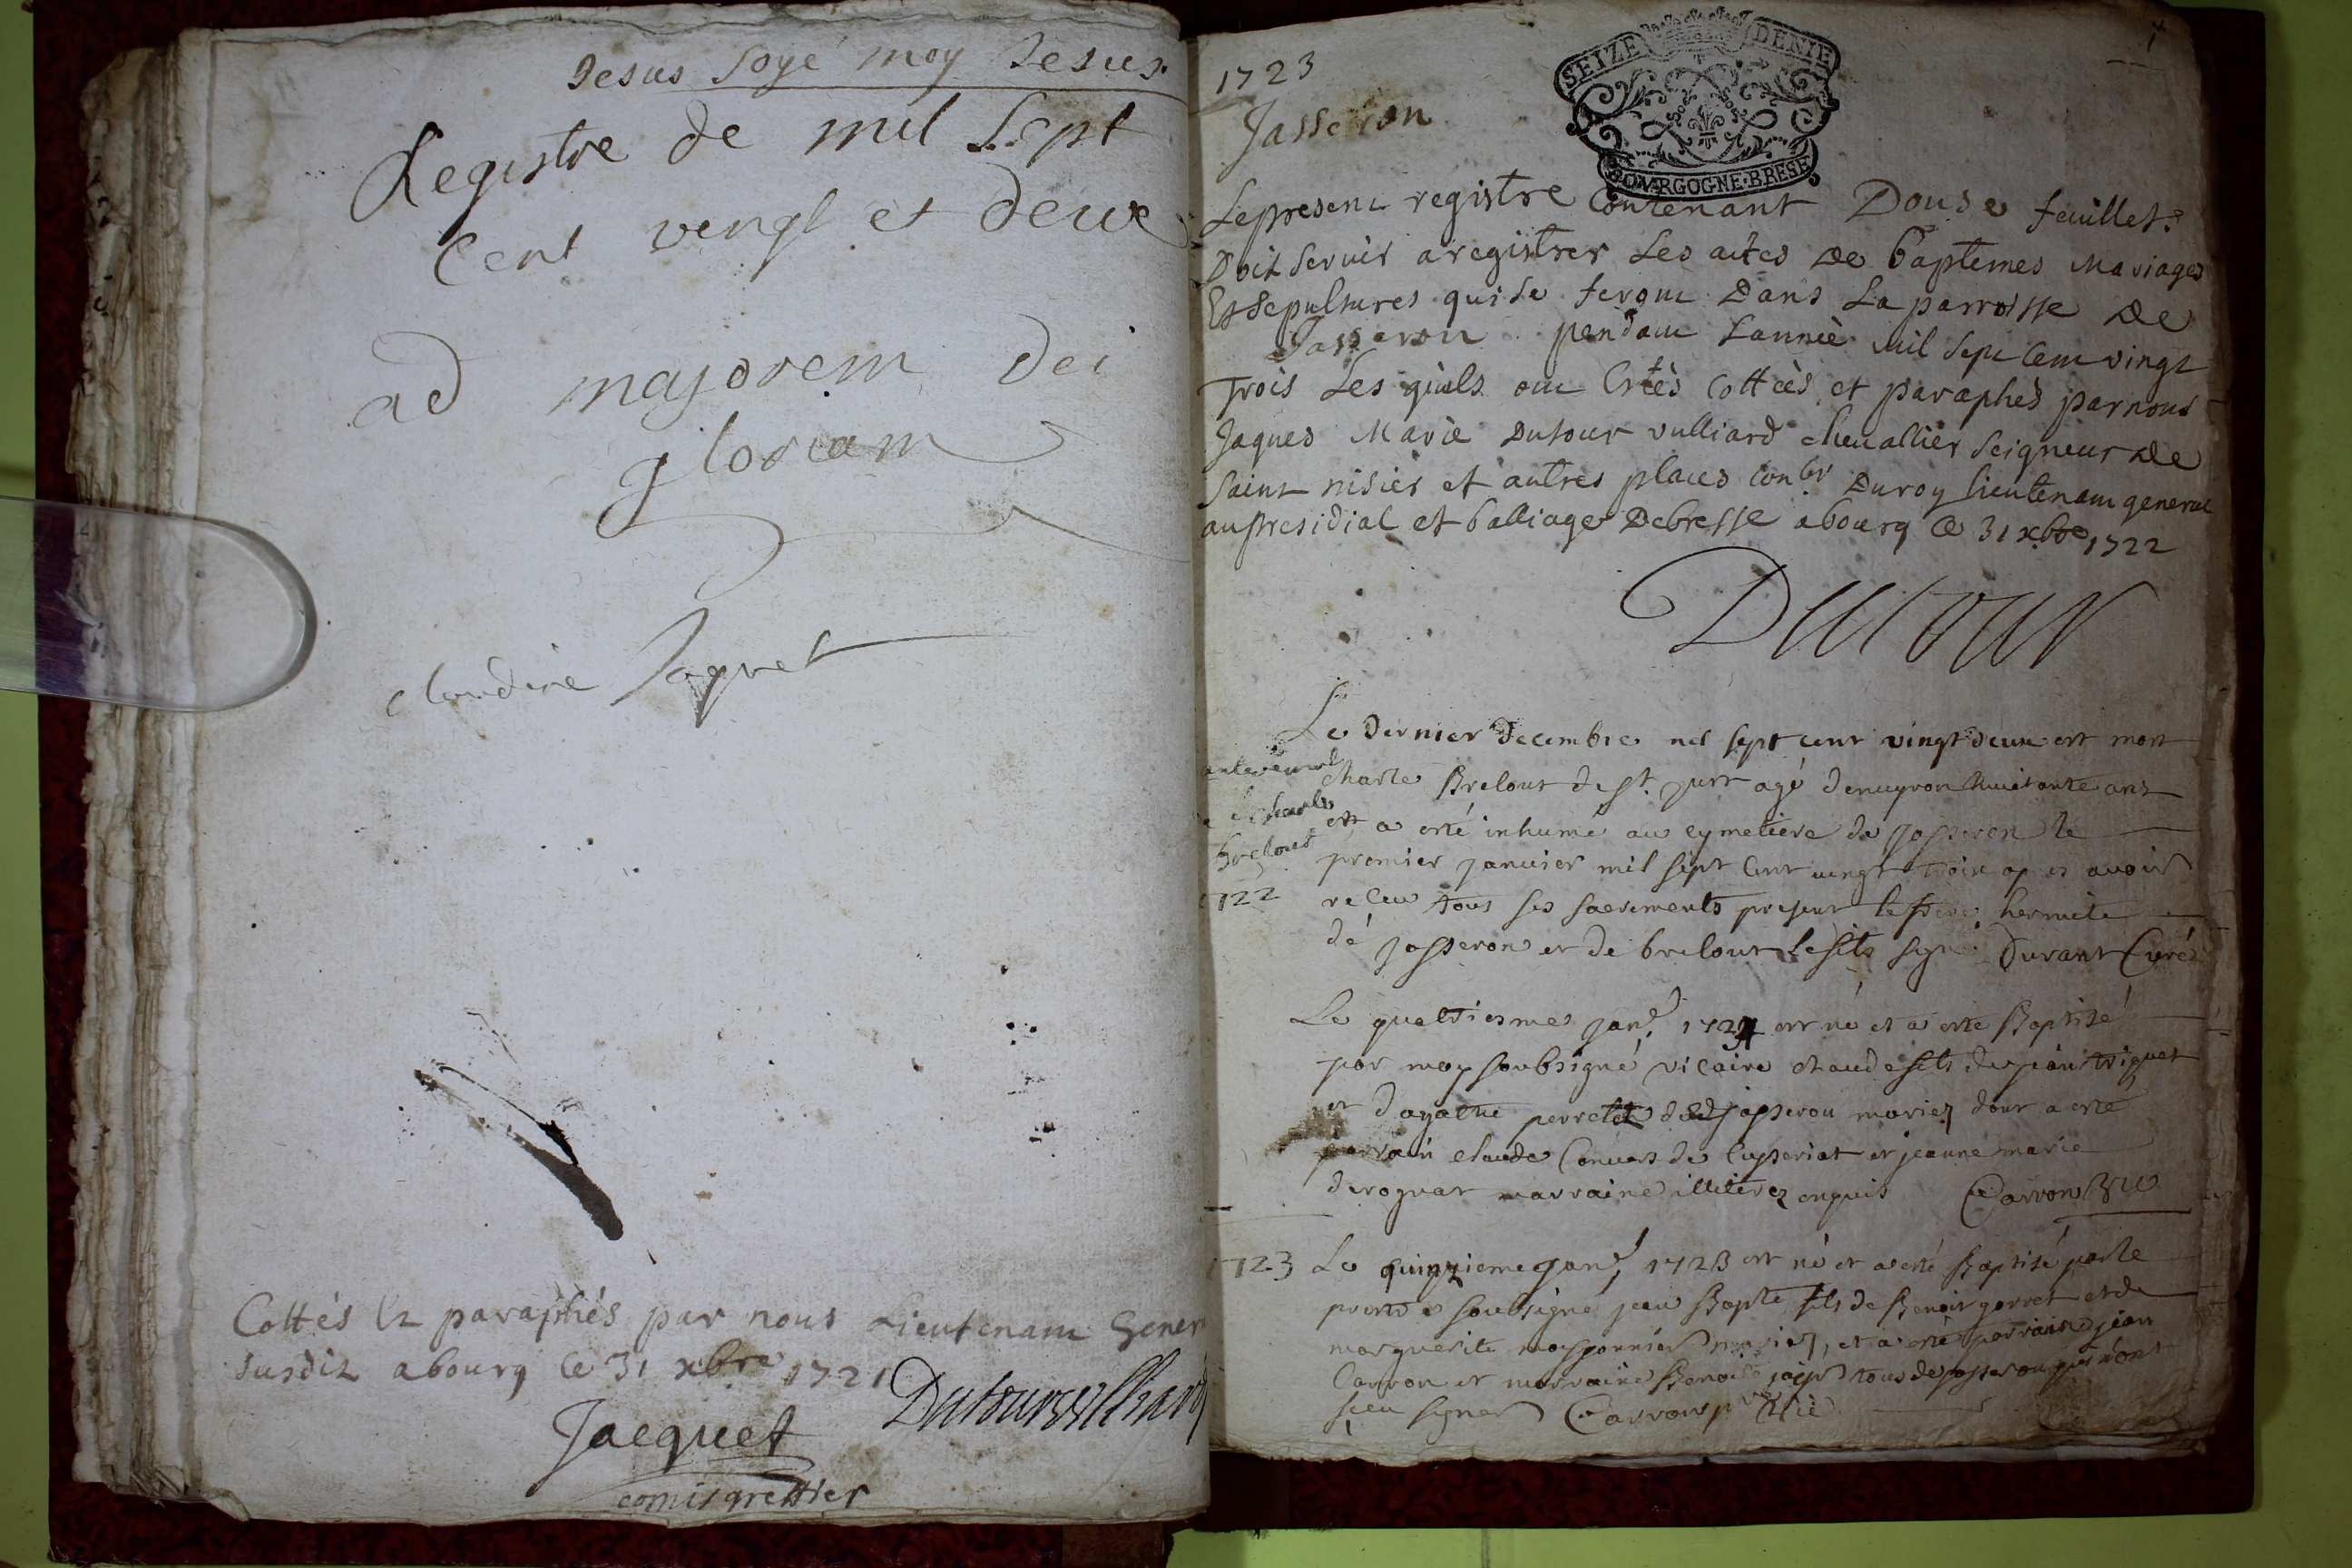 Jesus soye moy Jesus.
Registre de mil sept
cent vingt et deux
ad majorem dei
gloriam
claudine Jaquet
Cottés et paraphés par nous Lieutenant Gener
susdit abourg ce 31 xbre 1721
Dutourvulliard
Jacquet
comis greffier
1723
Jasseron
SEIZE DENIE
BOVRGOGNE·BRESE
1
Le present registre Contenant Douse feuillets
Doit servir aregistrer Les actes de baptemes Mariages
Et sepultures qui se feront Dans La parroisse de
Jasseron pendant Lannée mil sept cent vingt
Trois Les quels ont Estés Cottés et paraphés par nous
Jaques Marie Dutour vulliard chevallier seigneur de
saint nisier et autres places Conser Du roy lieutenant general
au presidial et balliage De bresse a bourg ce 31 xbre 1722
Dutour
Le dernier decembre mil sept cent vingt deux est mort
charle Brelout de st. jurr agé denuyron huictante ans
et a esté inhumé au cymetiere de Jasseron le
premier janvier mil sept cent vingt trois apres avoir
receu tous ses sacrements present le frere hermite
de Jasseron et de brelout le fils signé Durant Curé
enterement
de charle
brelout
1722
Le quattriesmes janr. 172 est né et a esté Baptisé
par moy soubsigné vicaire claude fils de jean triquet
et dagathe perret de Jasseron mariez dont a esté
parrain claude Convers de Cuyseriat et jeanne marie
deroguat marraine illiterez enquis Carron vic
1723
Le quinzieme janr. 1723 est né et a esté Baptisé par le
pretre soubsigné jean Bapte fils de Benoit gorret et de
marguerite moyponnier mariez, et a esté parrain jean
Carron et marraine Benoite tous de jasseron qui n'ont
sceu signer Carron ptre vic